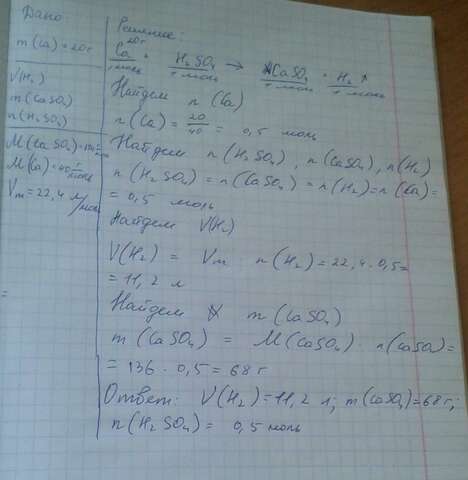 Дано
m(Ca)=20г
V(H₂)
m(CaSO₄)
n(H₂SO₄)
M(CaSO₄)=
M(Ca)=40 г/моль
Vm=22,4 л/моль
Решение:
20г
Ca + H₂SO₄ → CaSO₄ + H₂↑
1 моль 1 моль 1 моль 1 моль
Найдем n(Ca)
n(Ca) = 20/40 = 0,5 моль
Найдем n(H₂SO₄), n(CaSO₄), n(H₂)
n(H₂SO₄)=n(CaSO₄)=n(H₂)=n(Ca)=
= 0,5 моль
Найдем V(H₂)
V(H₂) = Vm · n(H₂)=22,4·0,5=
= 11,2 л
Найдем m(CaSO₄)
m(CaSO₄) = M(CaSO₄) · n(CaSO₄)=
= 136 · 0,5 = 68 г
Ответ: V(H₂)=11,2 л; m(CaSO₄)=68г;
n(H₂SO₄) = 0,5 моль